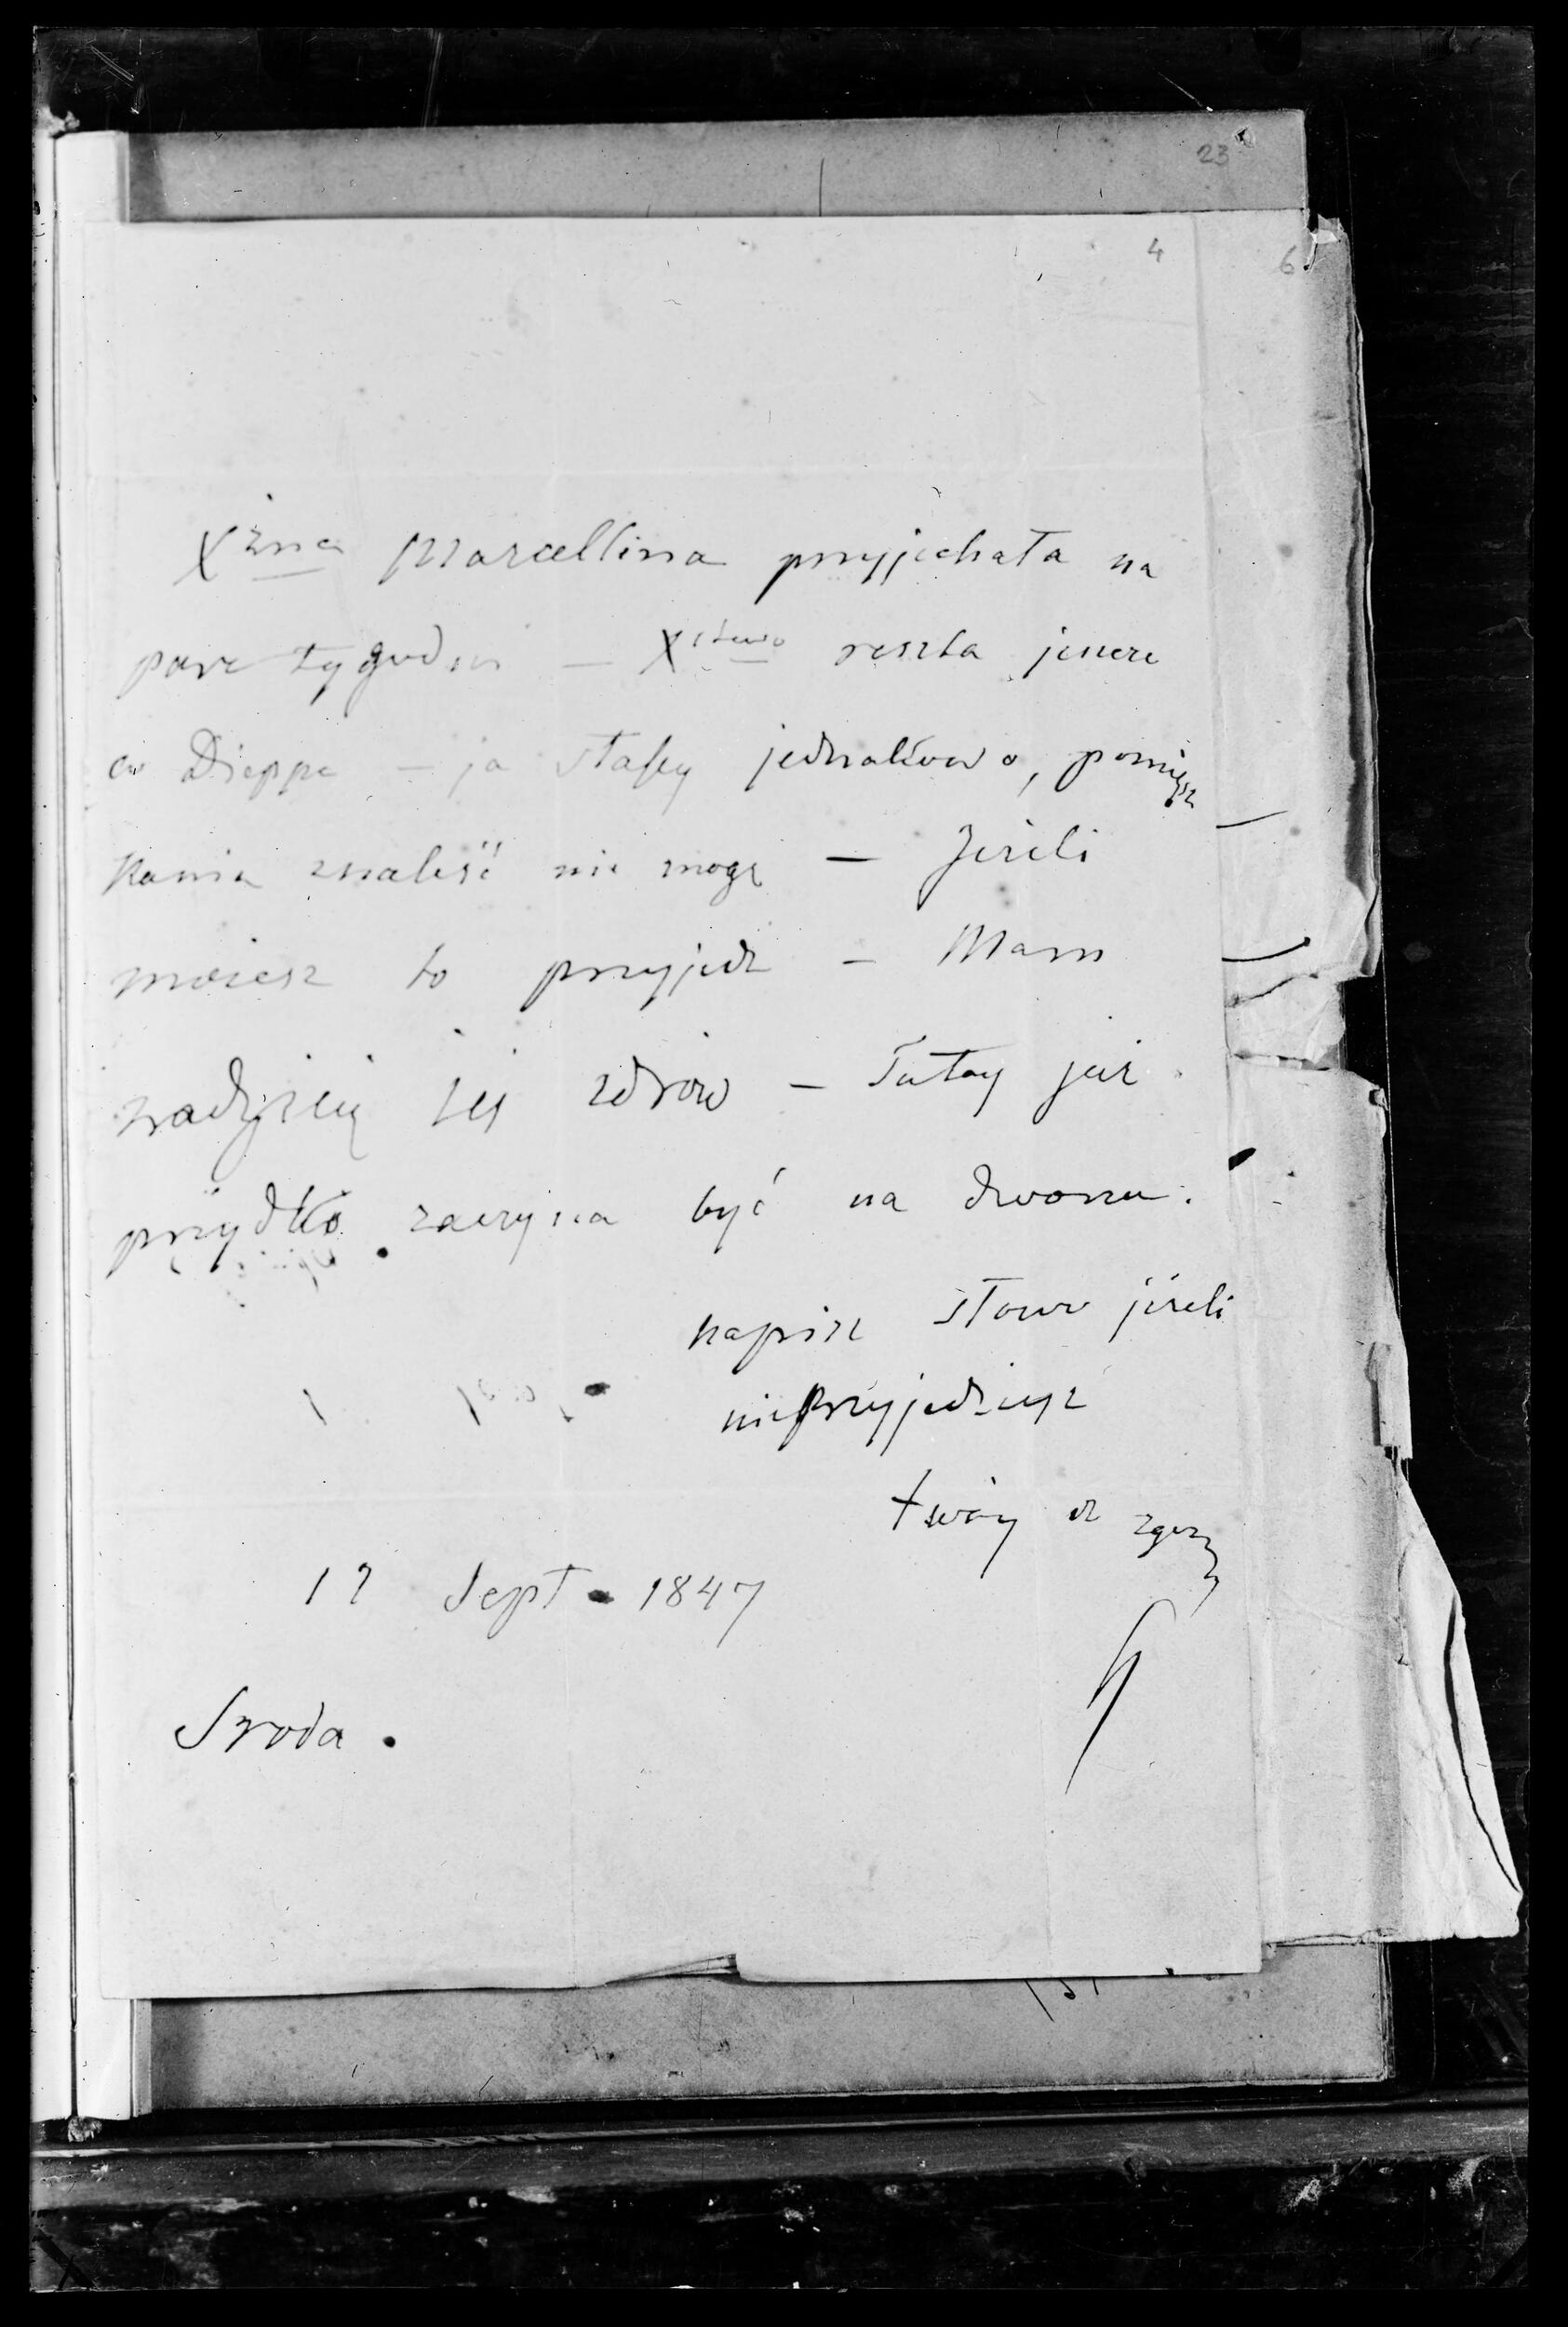 23
4
6
Xżna Marcellina przyjechała na
pare tygodni — Xstwo reszta jescze
w Dieppe — ja słaby jednakowo, pomięsz
kania znaleść nie mogę — Jeżeli
możesz to przyjedz — Mam
nadzieię żeś zdrow — Tutay już
przydko zaczyna być na dworze.
napisz słowo jeżeli
nieprzyjedziesz
twóy
Sept. 1847
Sroda.